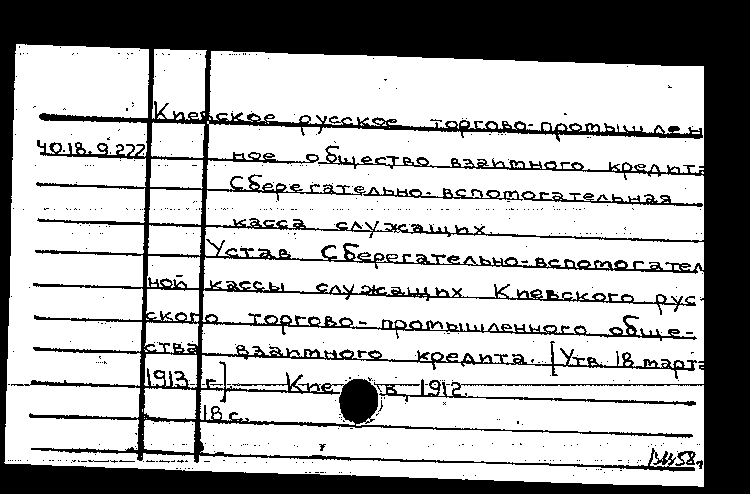 Киевское русское торгово-промышлен
40.18.9.222 ное общество взаимного кредита
Сберегательно-вспомогательная
касса служащих.
Устав Сберегательно-вспомогател
ной кассы служащих Киевского рус-
ского торгово-промышленного обще-
ства взаимного кредита. [Утв. 18 марта
1913 г.] Киев, 1912.
18 с.